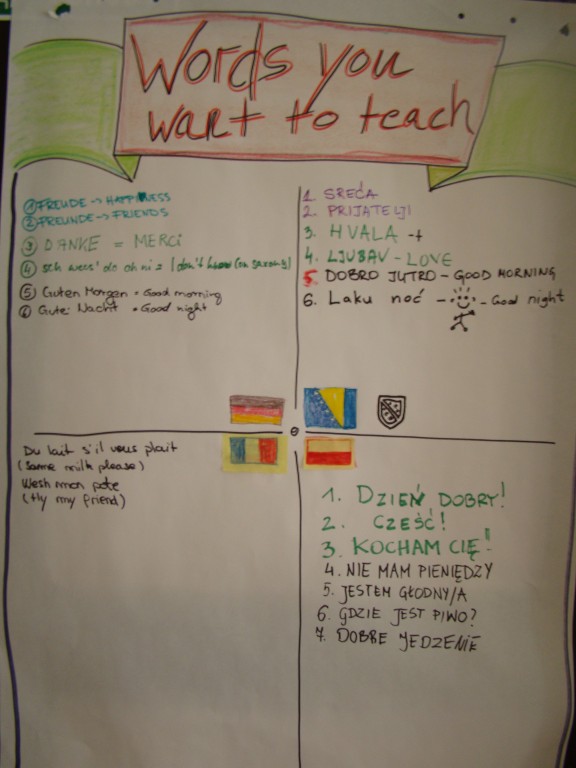 Words you
want to teach
① FREUDE -> HAPPINESS
② FREUNDE -> FRIENDS
③ DANKE = MERCI
④ sch wees' do oh ni z (don't know (on saxony)
⑤ Guten Morgen • Good morning
⑥ Gute Nacht • Good night
1. SREĆA
2. PRIJATELJI
3. HVALA -+
4. LJUBAV - LOVE
5. DOBRO JUTRO - GOOD MORNING
6. Laku noć - - Good night
Du lait s'il vous plait
(Some milk please)
Wesh mon pote
(Hy my friend)
1. DZIEŃ DOBRY!
2. CZEŚĆ!
3. KOCHAM CIĘ!
4. NIE MAM PIENIĘDZY
5. JESTEM GŁODNY/A
6. GDZIE JEST PIWO?
7. DOBRE JEDZENIE